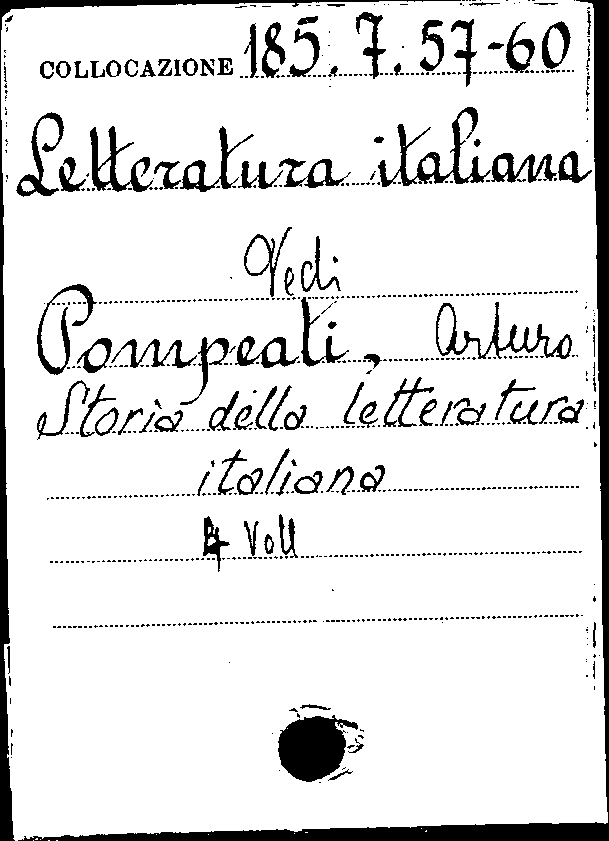 COLLOCAZIONE 185.7.57-60
Letteratura italiana
Vedi
Pompeati, Arturo
Storia della letteratura
italiana
4 Voll